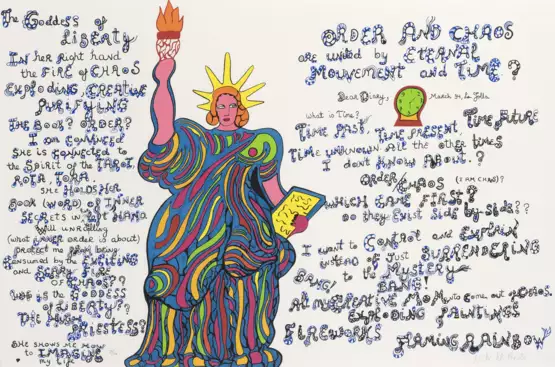 The Goddess of
LIBERTY
IN her right hand
the FIRE of CHAOS
EXPLODING CREATIVE
PURIFYING
THE BOOK? ORDER?
I am CONVINCED
SHE IS CONNECTED to
the SPIRIT of the TAROT.
ROTA, TORA.
SHE HOLDS HER
BOOK (WORD) OF INNER
SECRETS in LEFT HAND
Will unravelling
(what INNER order is about)
protect me from being
consumed by the EXCITING
and SCARY FIRE
OF CHAOS??
Who is the GODDESS
of LIBERTY??
The HIGH
PRIESTESS?
SHE SHOWS ME HOW
to IMAGINE
my life
ORDER AND CHAOS
are united by ETERNAL
MOUVEMENT and TIME?
Dear Diary, March 94, La Jolla
what is Time?
TIME PAST, TIME PRESENT, TIME FUTURE
TIME UNKNOWN. All the other times
I don't KNOW ABOUT.?
ORDER (I AM CHAOS?)
CHAOS
WHICH CAME FIRST?
do they EXIST SIDE by SIDE??
I want to Control and EXPLAIN
instead of just SURRENDERING
to the MYSTERY
BANG! BANG!
All my CREATIVE MOMENTS come out of CHAOS.
EXPLODING PAINTINGS
FIREWORKS FLAMING RAINBOW